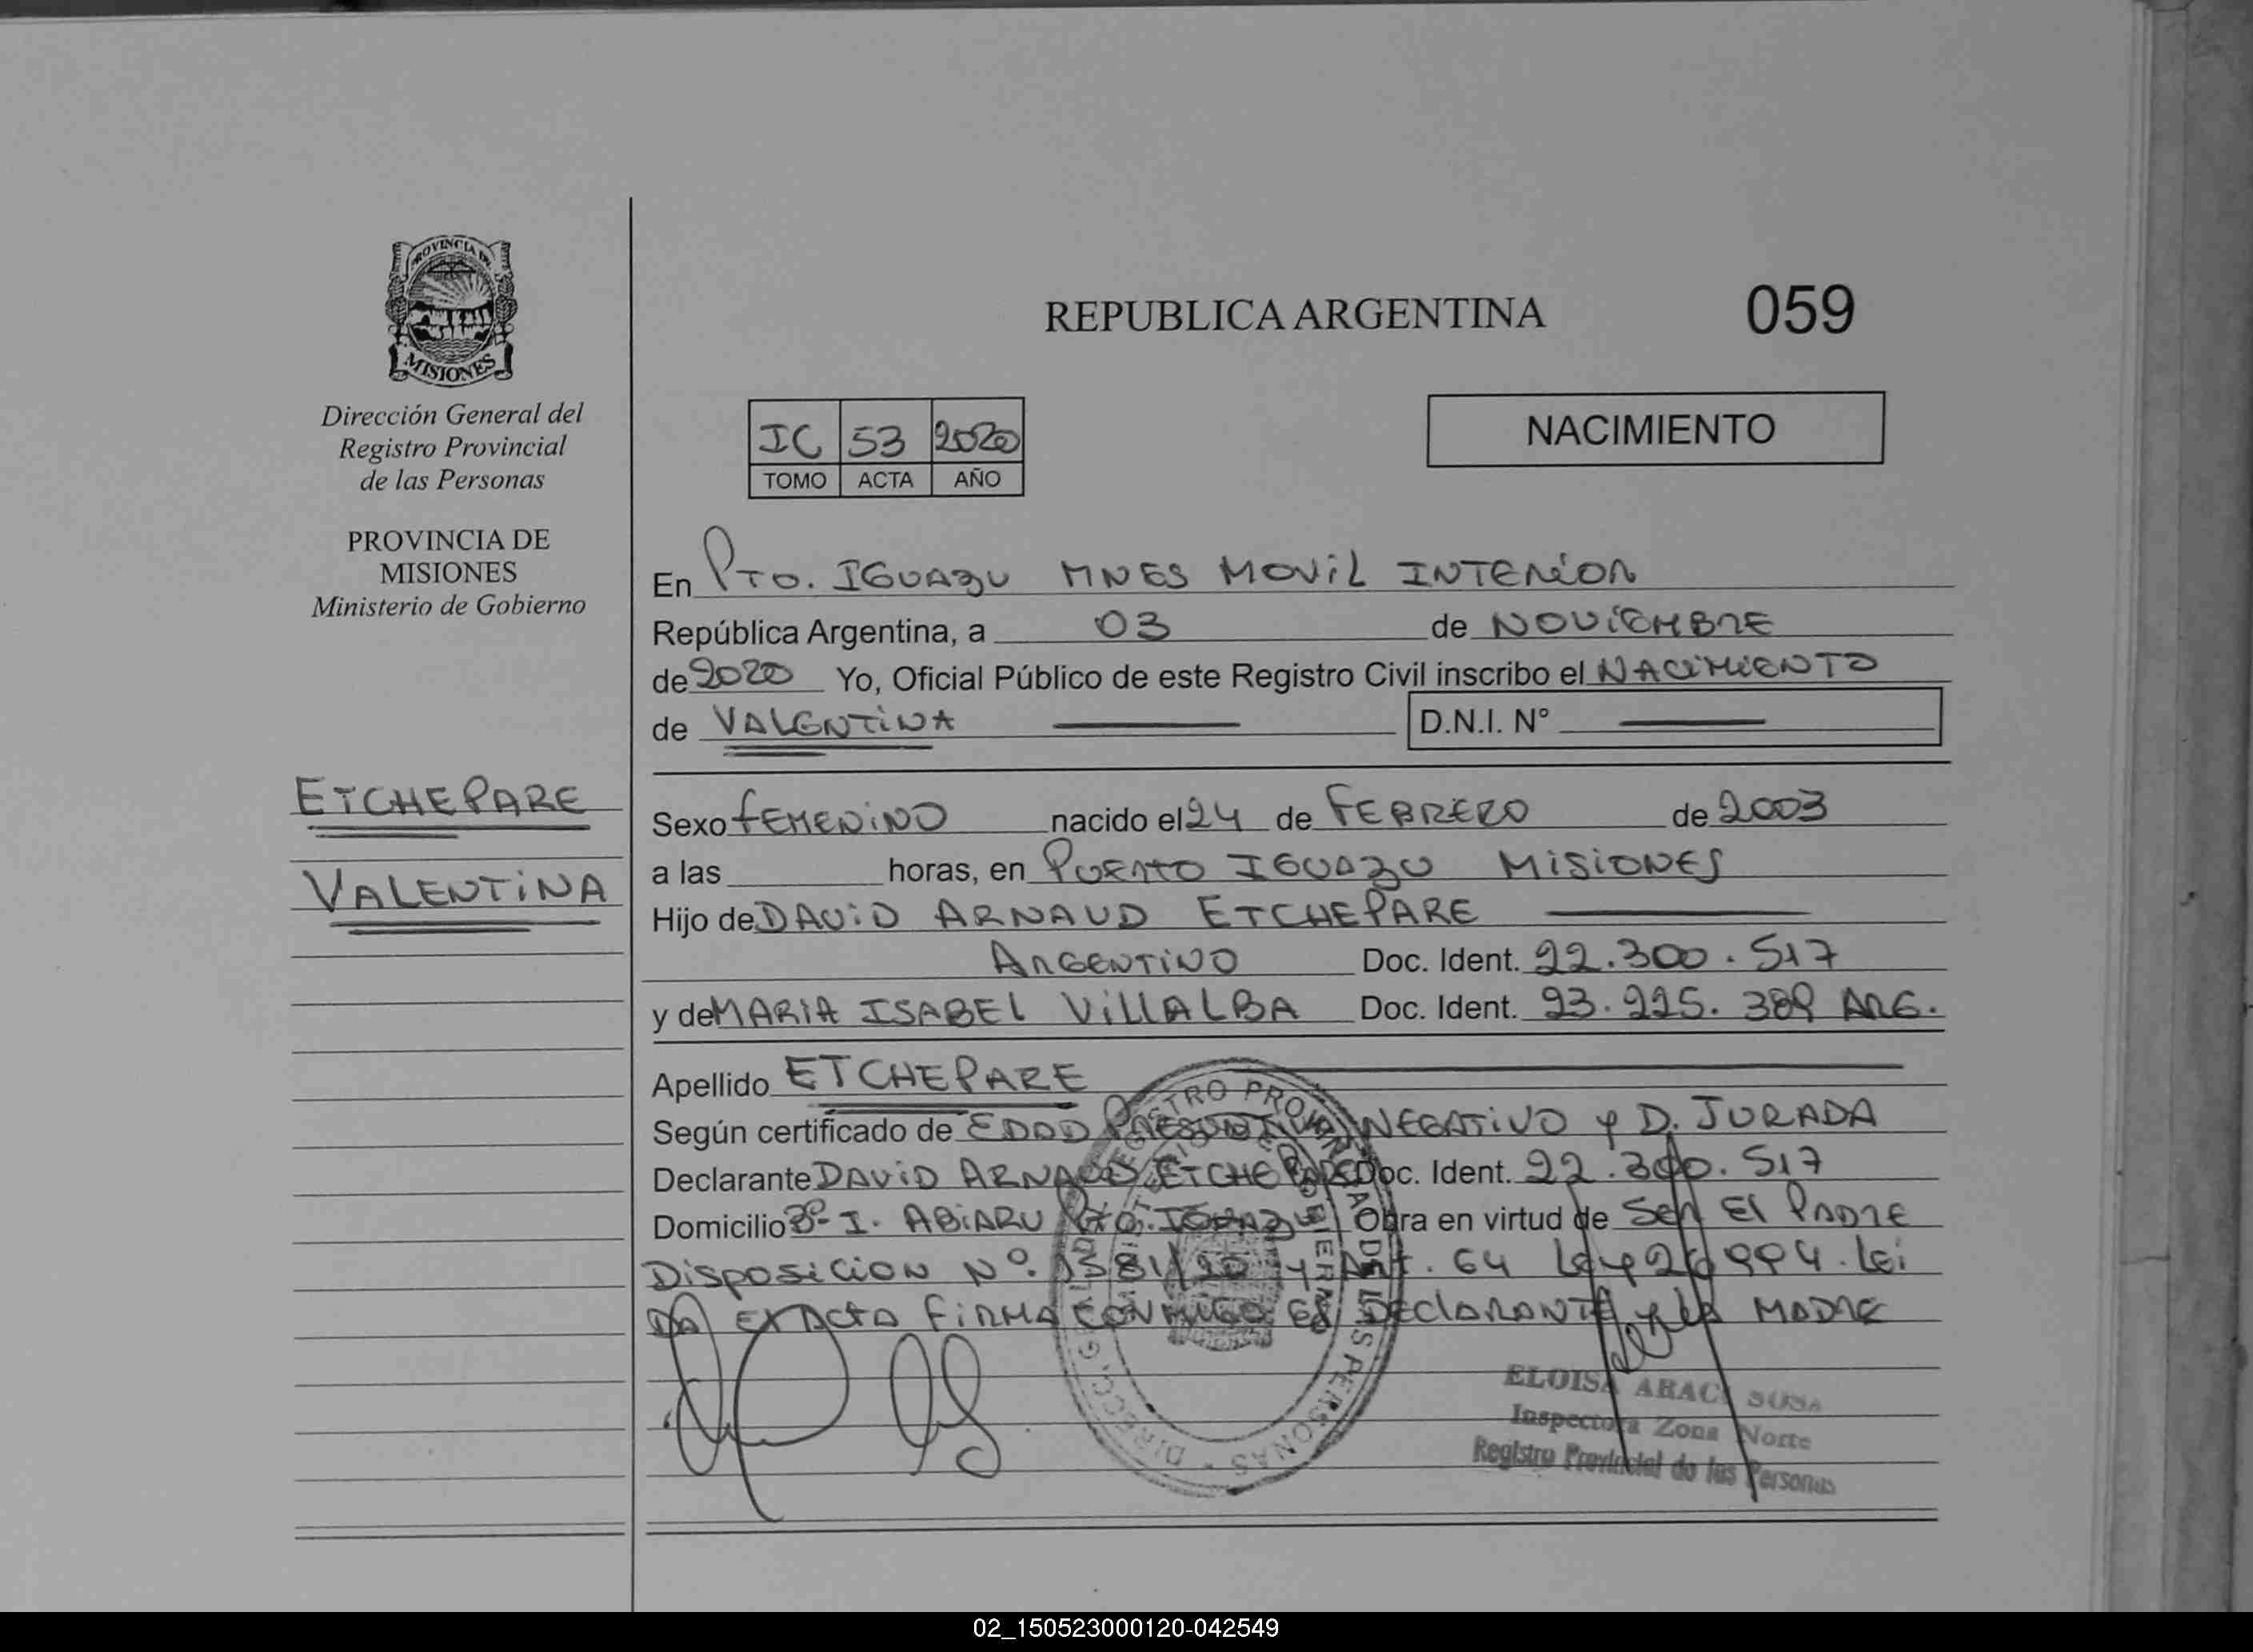 PROVINCIA DE
MISIONES
Dirección General del
Registro Provincial
de las Personas
PROVINCIA DE
MISIONES
Ministerio de Gobierno
ETCHEPARE
VALENTINA
REPUBLICA ARGENTINA
059
IC 53 2020
TOMO ACTA AÑO
NACIMIENTO
En Pto. IGUAZU MNES MOVIL INTERIOR
República Argentina, a 03 de NOVIEMBRE
de 2020 Yo, Oficial Público de este Registro Civil inscribo el NACIMIENTO
de VALENTINA D.N.I. N°
Sexo FEMENINO nacido el 24 de FEBRERO de 2003
a las horas, en PUERTO IGUAZU MISIONES
Hijo de DAVID ARNAUD ETCHEPARE
ARGENTINO Doc. Ident. 22.300.517
y de MARIA ISABEL VILLALBA Doc. Ident. 93.225.389 ARG.
Apellido ETCHEPARE
Según certificado de EDAD PRESUNTIVA NEGATIVO y D. JURADA
Declarante DAVID ARNAUD ETCHEPARE Doc. Ident. 22.300.517
Domicilio Bº I. ABIARU Pto. IGUAZU Obra en virtud de SER El PADRE
DISPOSICION Nº. 1381/20 y Art. 64 Ley 26994. Lei
DA EXACTA FIRMA CONMIGO El DECLARANTE y LA MADRE
ELOISA ARACI SOSA
Inspectora Zona Norte
Registro Provincial de las Personas
02_150523000120-042549